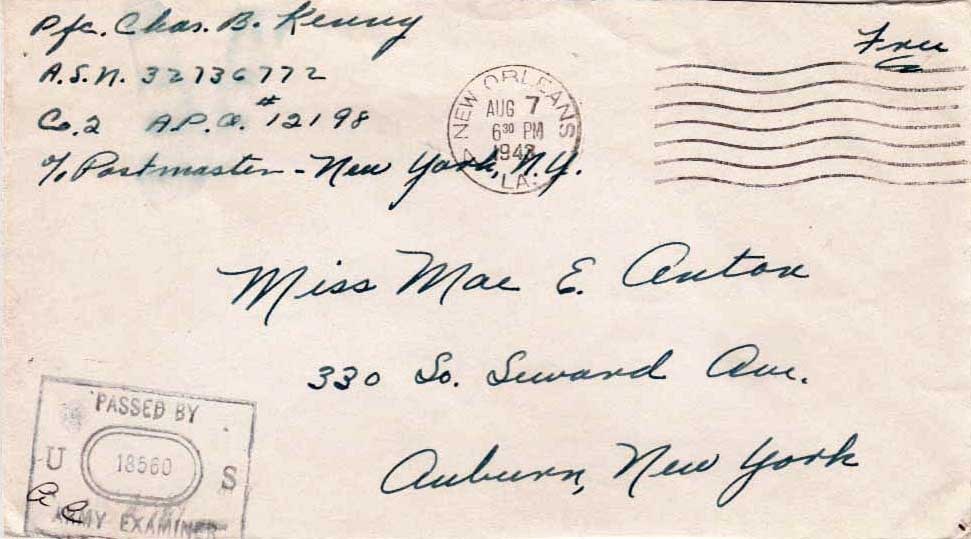 Pfc. Chas. B. Kenny
A.S.N. 32736772
Co. 2 A.P.O. #12198
c/o Postmaster - New York, N.Y.
Free
NEW ORLEANS
AUG 7
6³⁰ PM
1943
LA.
Miss Mae E. Anton
330 So. Seward Ave.
Auburn, New York
PASSED BY
U 18560 S
ARMY EXAMINER